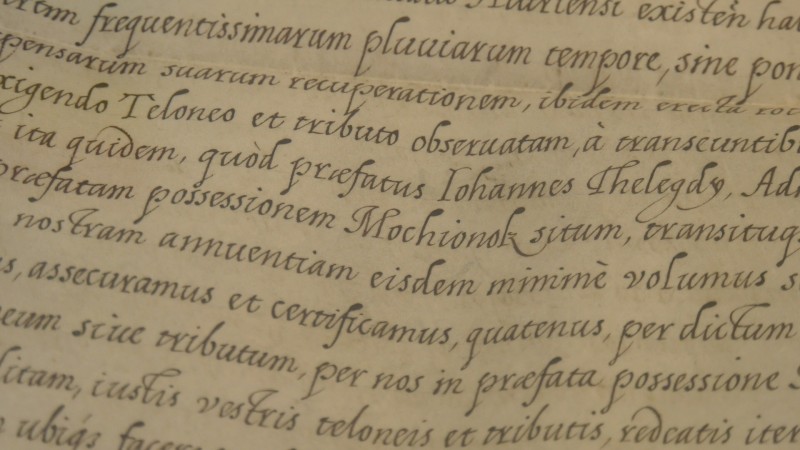 existen
frequentissimarum pluuiarum tempore, sine
suarum recuperationem, ibidem erecta
exigendo Teloneo et tributo obseruatam, à transeuntib
ita quidem, quòd præfatus Iohannes Thelegdy, Ad
præfatam possessionem Mochionok situm, transituq
nostram annuentiam eisdem minimè volumus
assecuramus et certificamus, quatenus, per dictum
siue tributum, per nos in præfata possessione
litam, iustis vestris teloneis et tributis, redeatis iter
ubiqz